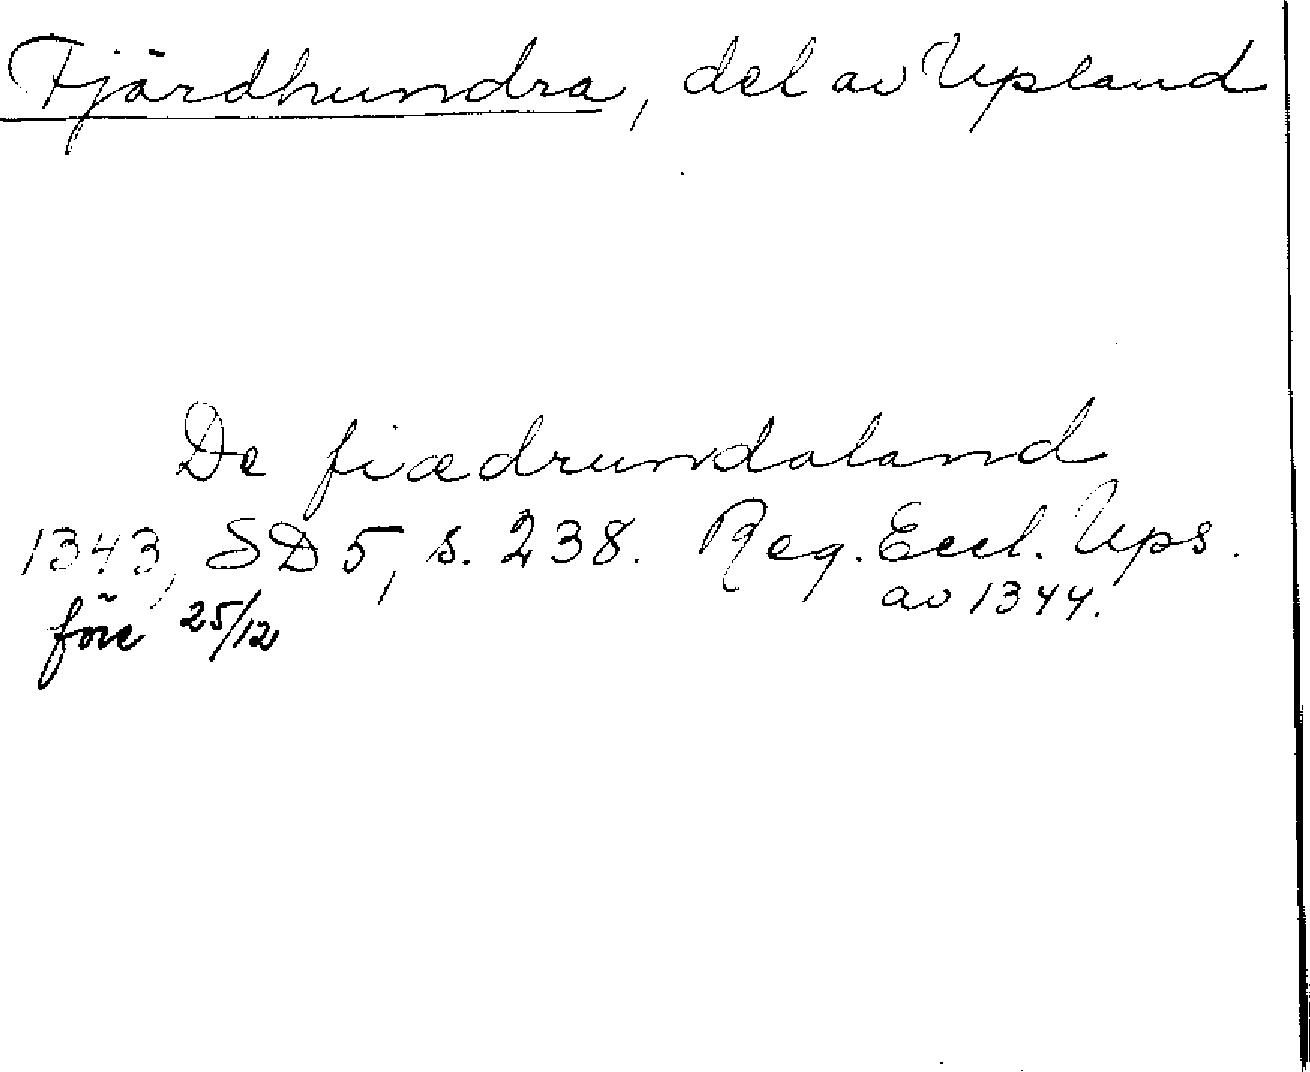 Fjärdhundra, del av Upland
De fiædrundaland
1343, SD 5, s. 238. Reg. Eccl. Ups.
före 25/12 av 1344.